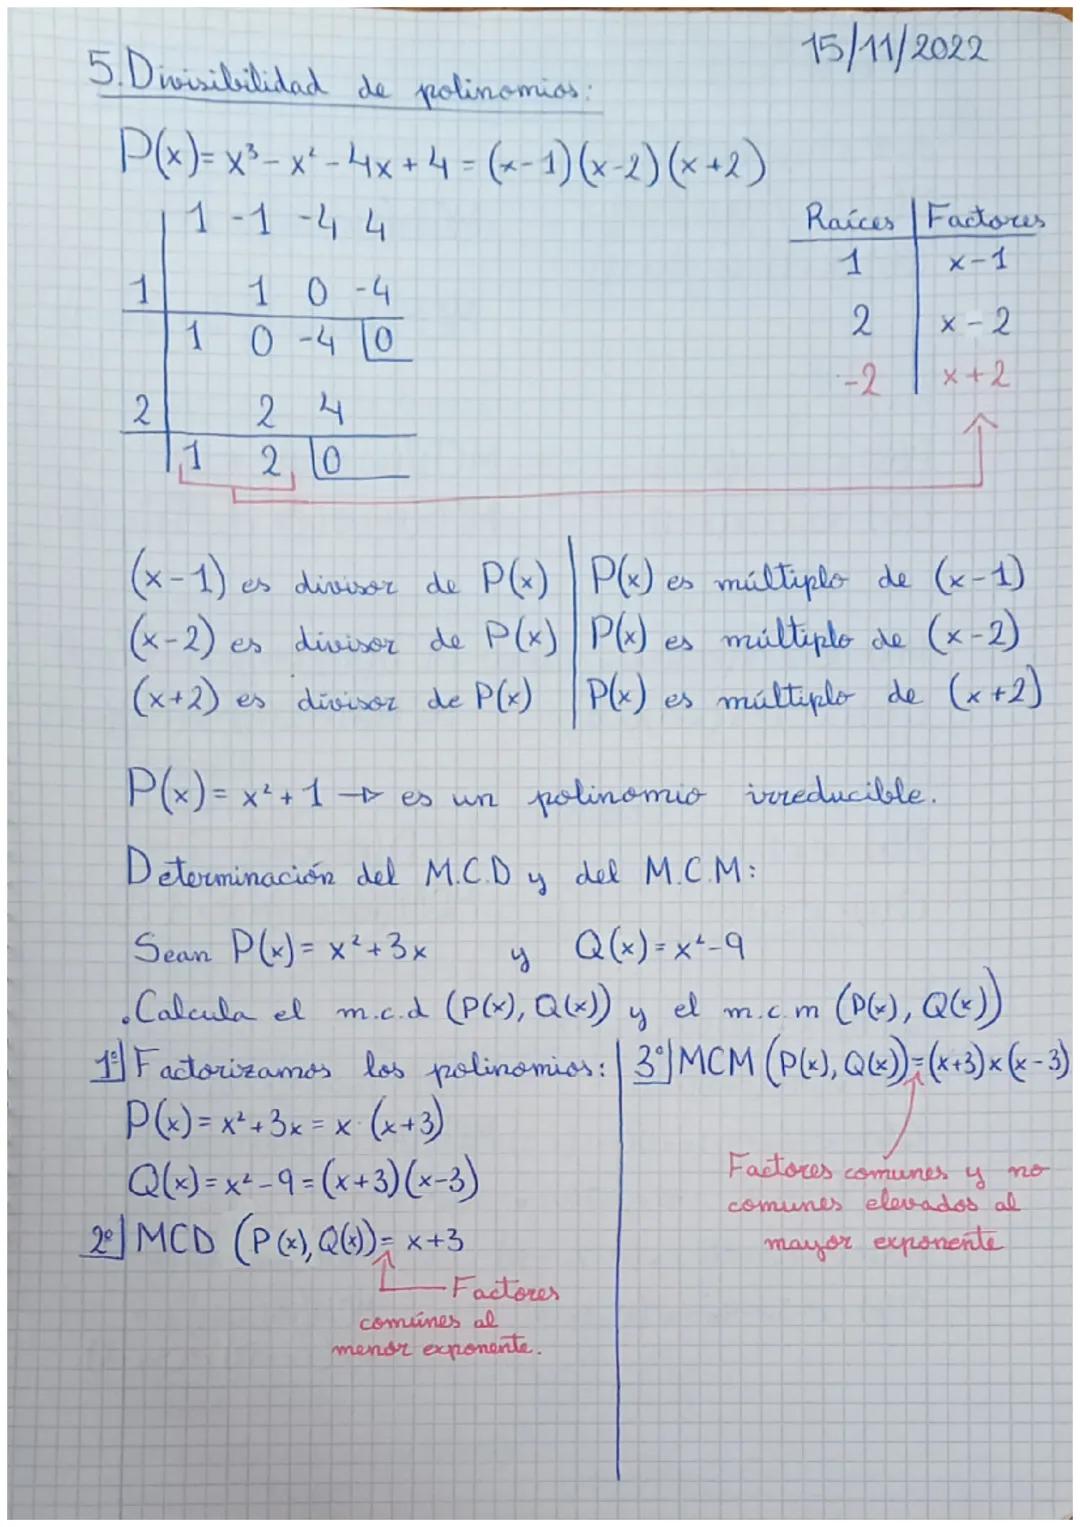 15/11/2022
5. Divisibilidad de polinomios:
P(x)= x³- x² - 4x + 4 = (x-1)(x-2)(x+2)
1 -1 -4 4
1 1 0 -4
1 0 -4 0
2 2 4
1 2 0
Raíces Factores
1 x-1
2 x-2
-2 x+2
(x-1) es divisor de P(x) P(x) es múltiplo de (x-1)
(x-2) es divisor de P(x) P(x) es múltiplo de (x-2)
(x+2) es divisor de P(x) P(x) es múltiplo de (x+2)
P(x)= x²+1 → es un polinomio irreducible.
Determinación del M.C.D y del M.C.M:
Sean P(x)= x²+3x y Q(x)= x²-9
.Calcula el m.c.d (P(x), Q(x)) y el m.c.m (P(x), Q(x))
1º] Factorizamos los polinomios:
P(x)= x²+3x = x · (x+3)
Q(x)= x²-9 = (x+3)(x-3)
2º] MCD (P(x), Q(x))= x+3
Factores
comúnes al
menor exponente.
3º] MCM (P(x), Q(x))=(x+3)x(x-3)
Factores comunes y no
comunes elevados al
mayor exponente